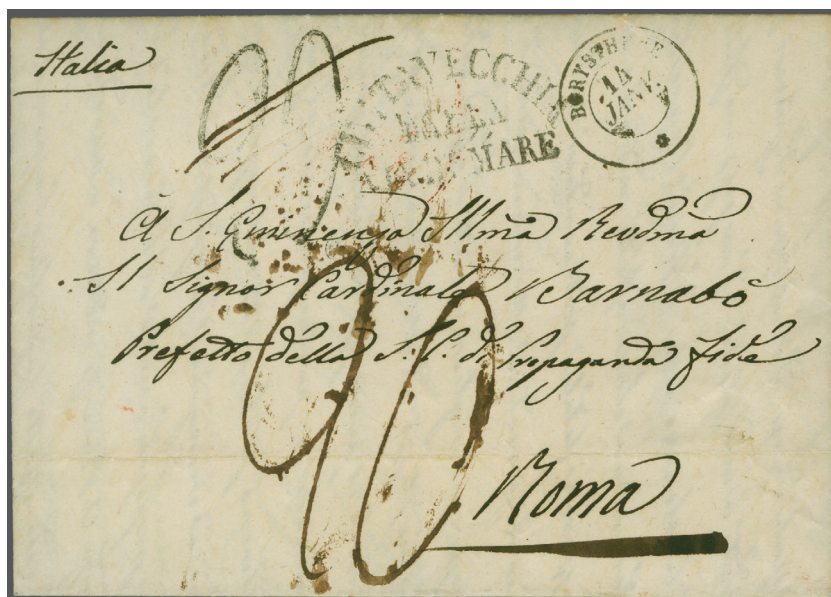 Italia
CIVITAVECCHIA
DALLA
VIA DI MARE
BORYSTHENE
14
JANV.
A S. Eminenza Illma Revdma
Il Signor Cardinale Barnabò
Prefetto della S. C. di Propaganda fide
90
Roma